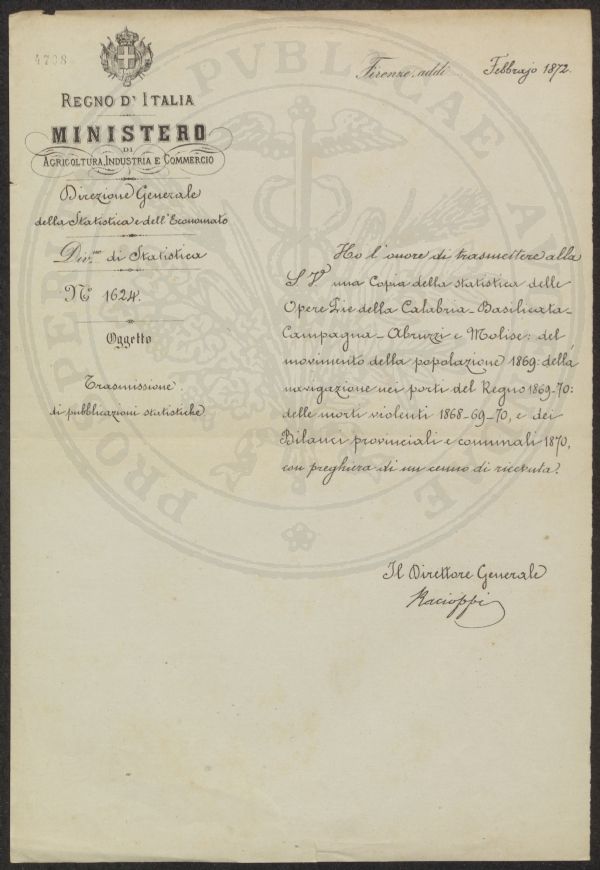 4708
Firenze, addì Febbrajo 1872.
REGNO D'ITALIA
MINISTERO
DI
AGRICOLTURA, INDUSTRIA E COMMERCIO
Direzione Generale
della Statistica e dell'Economato
Div.ne di Statistica
N.o 1624.
Oggetto
Trasmissione
di pubblicazioni statistiche
Ho l'onore di trasmettere alla
S V una Copia della statistica delle
Opere Pie della Calabria - Basilicata -
Campagna - Abruzzi e Molise: del
movimento della popolazione 1869: della
navigazione nei porti del Regno 1869-70:
delle morti violenti 1868-69-70, e dei
Bilanci provinciali e comunali 1870,
con preghiera di un cenno di ricevuta.
Il Direttore Generale
Racioppi
PROSPERITATI PUBLICAE AUGENDAE